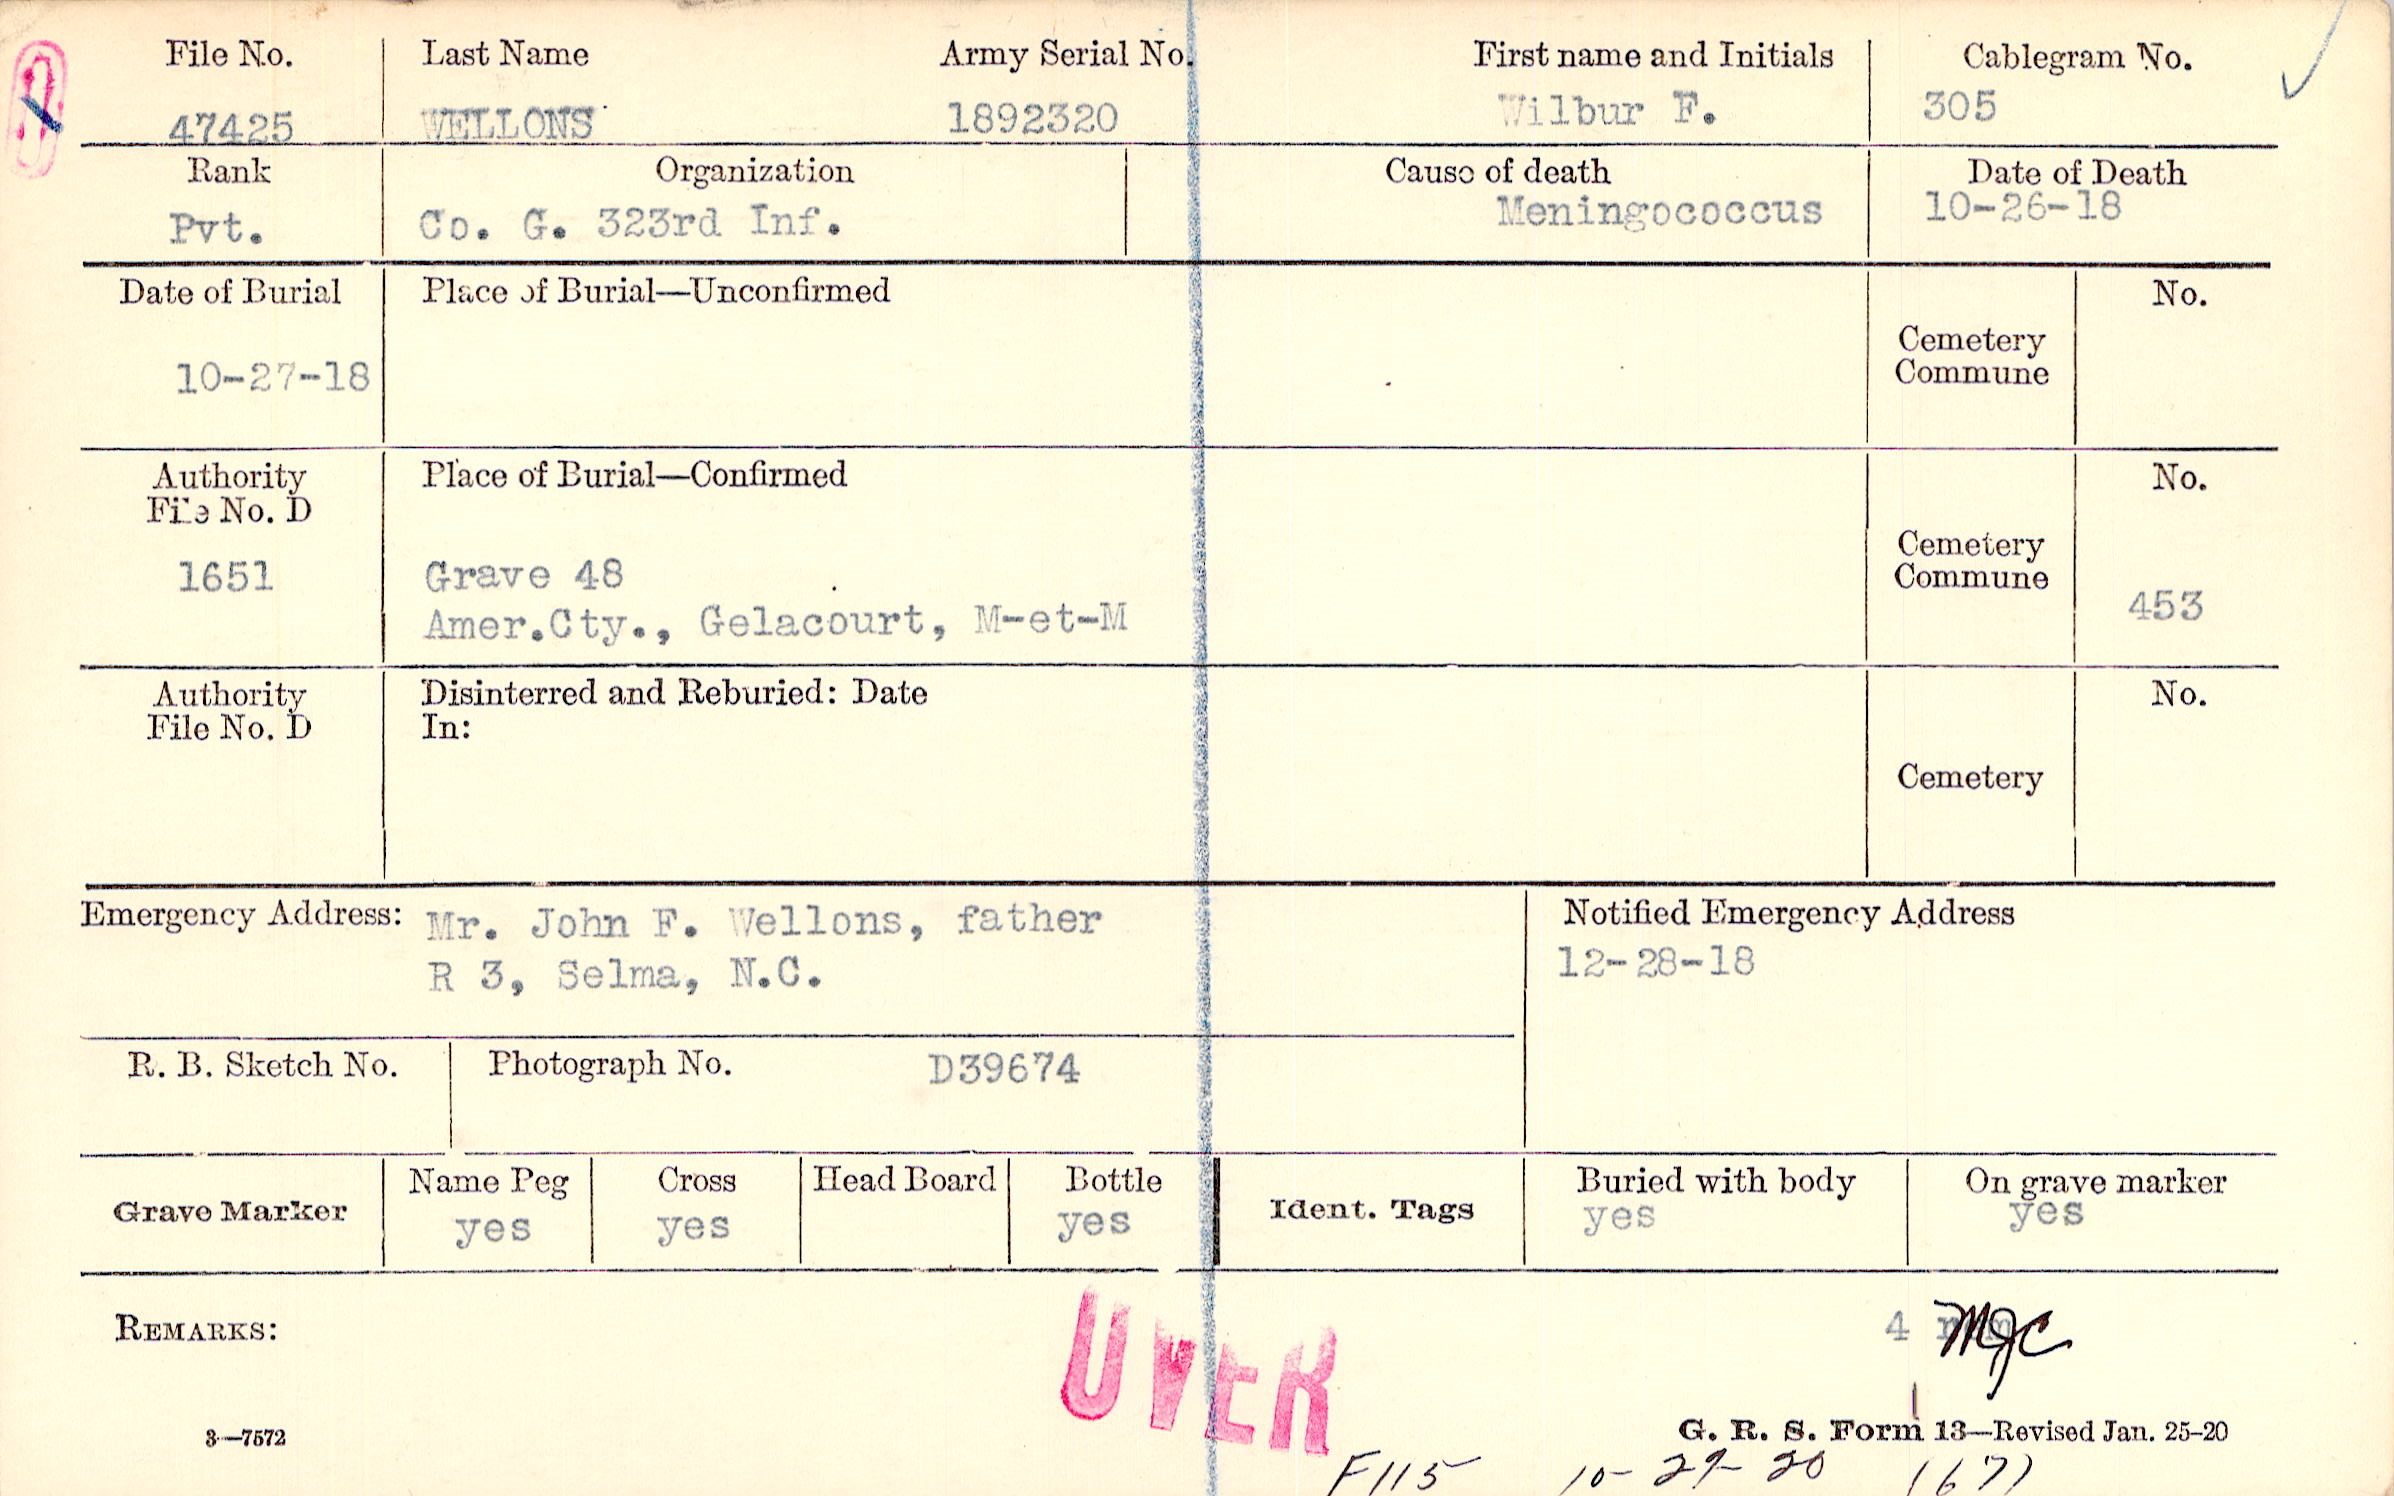 File No. Last Name Army Serial No. First name and Initials Cablegram No.
47425 WELLONS 1892320 Wilbur F. 305
Rank Organization Cause of death Date of Death
Pvt. Co. G. 323rd Inf. Meningococcus 10-26-18
Date of Burial Place of Burial—Unconfirmed No.
Cemetery
Commune
10-27-18
Authority Place of Burial—Confirmed No.
File No. D
Cemetery
Commune
1651 Grave 48
453
Amer.Cty., Gelacourt, M-et-M
Authority Disinterred and Reburied: Date No.
File No. D In:
Cemetery
Emergency Address: Mr. John F. Wellons, father Notified Emergency Address
R 3, Selma, N.C. 12-28-18
R. B. Sketch No. Photograph No. D39674
Grave Marker Name Peg Cross Head Board Bottle Ident. Tags Buried with body On grave marker
yes yes yes yes yes
REMARKS: 4 MJC
OVER
3—7572 G. R. S. Form 13—Revised Jan. 25-20
F115 10-29-20